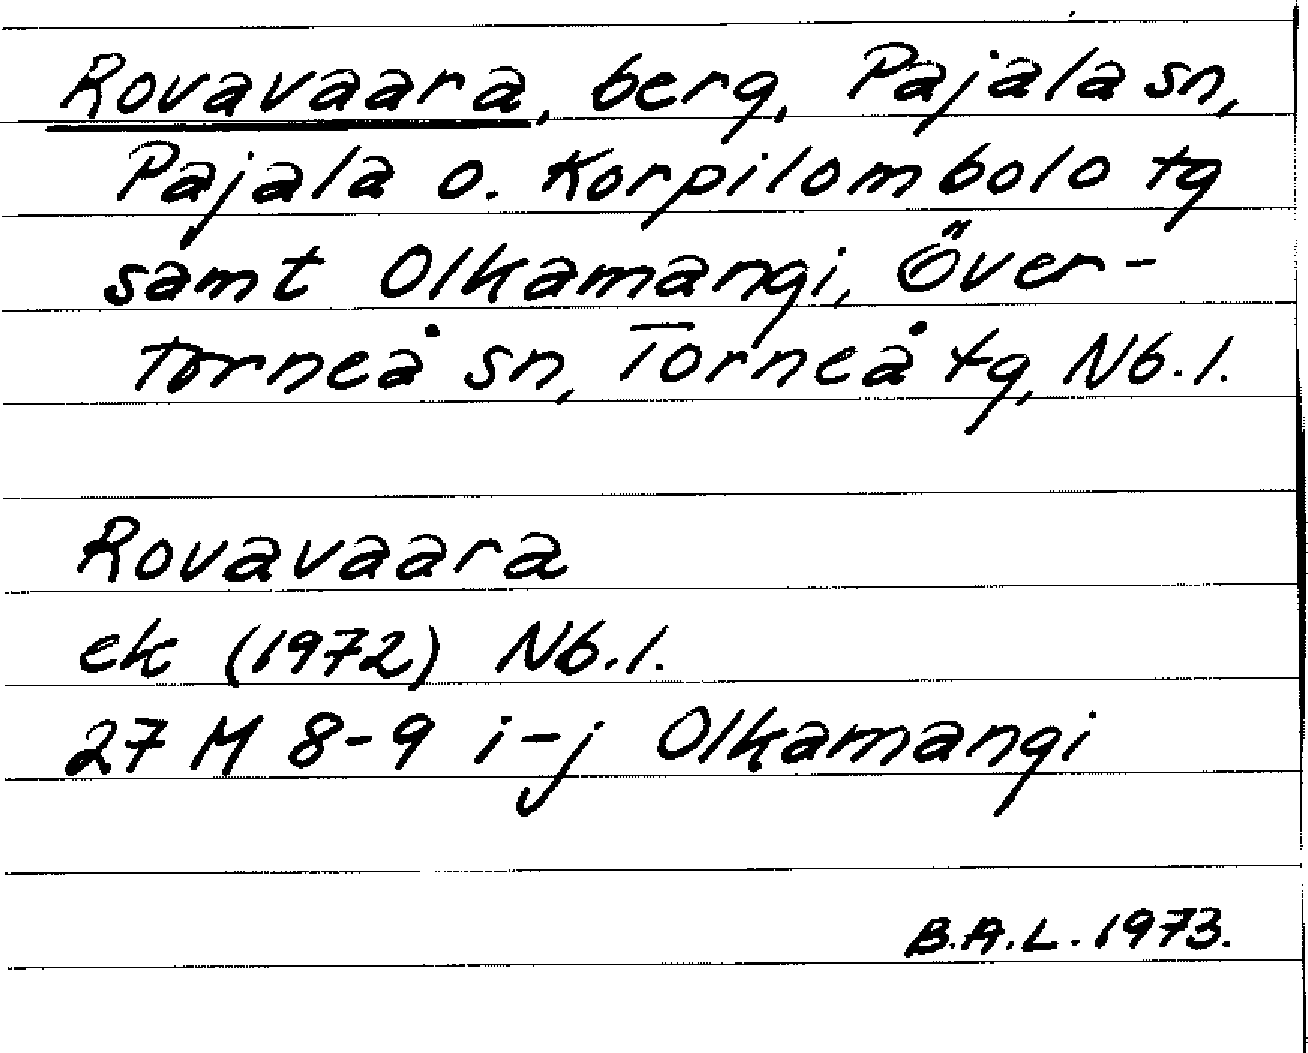 Rovavaara, berg, Pajala sn,
Pajala o. Korpilombolo tg
samt Olkamangi, Över-
torneå sn, Torneå tg, Nb. l.
Rovavaara
ek (1972) Nb. l.
27 M 8-9 i-j Olkamangi
B.A.L. 1973.